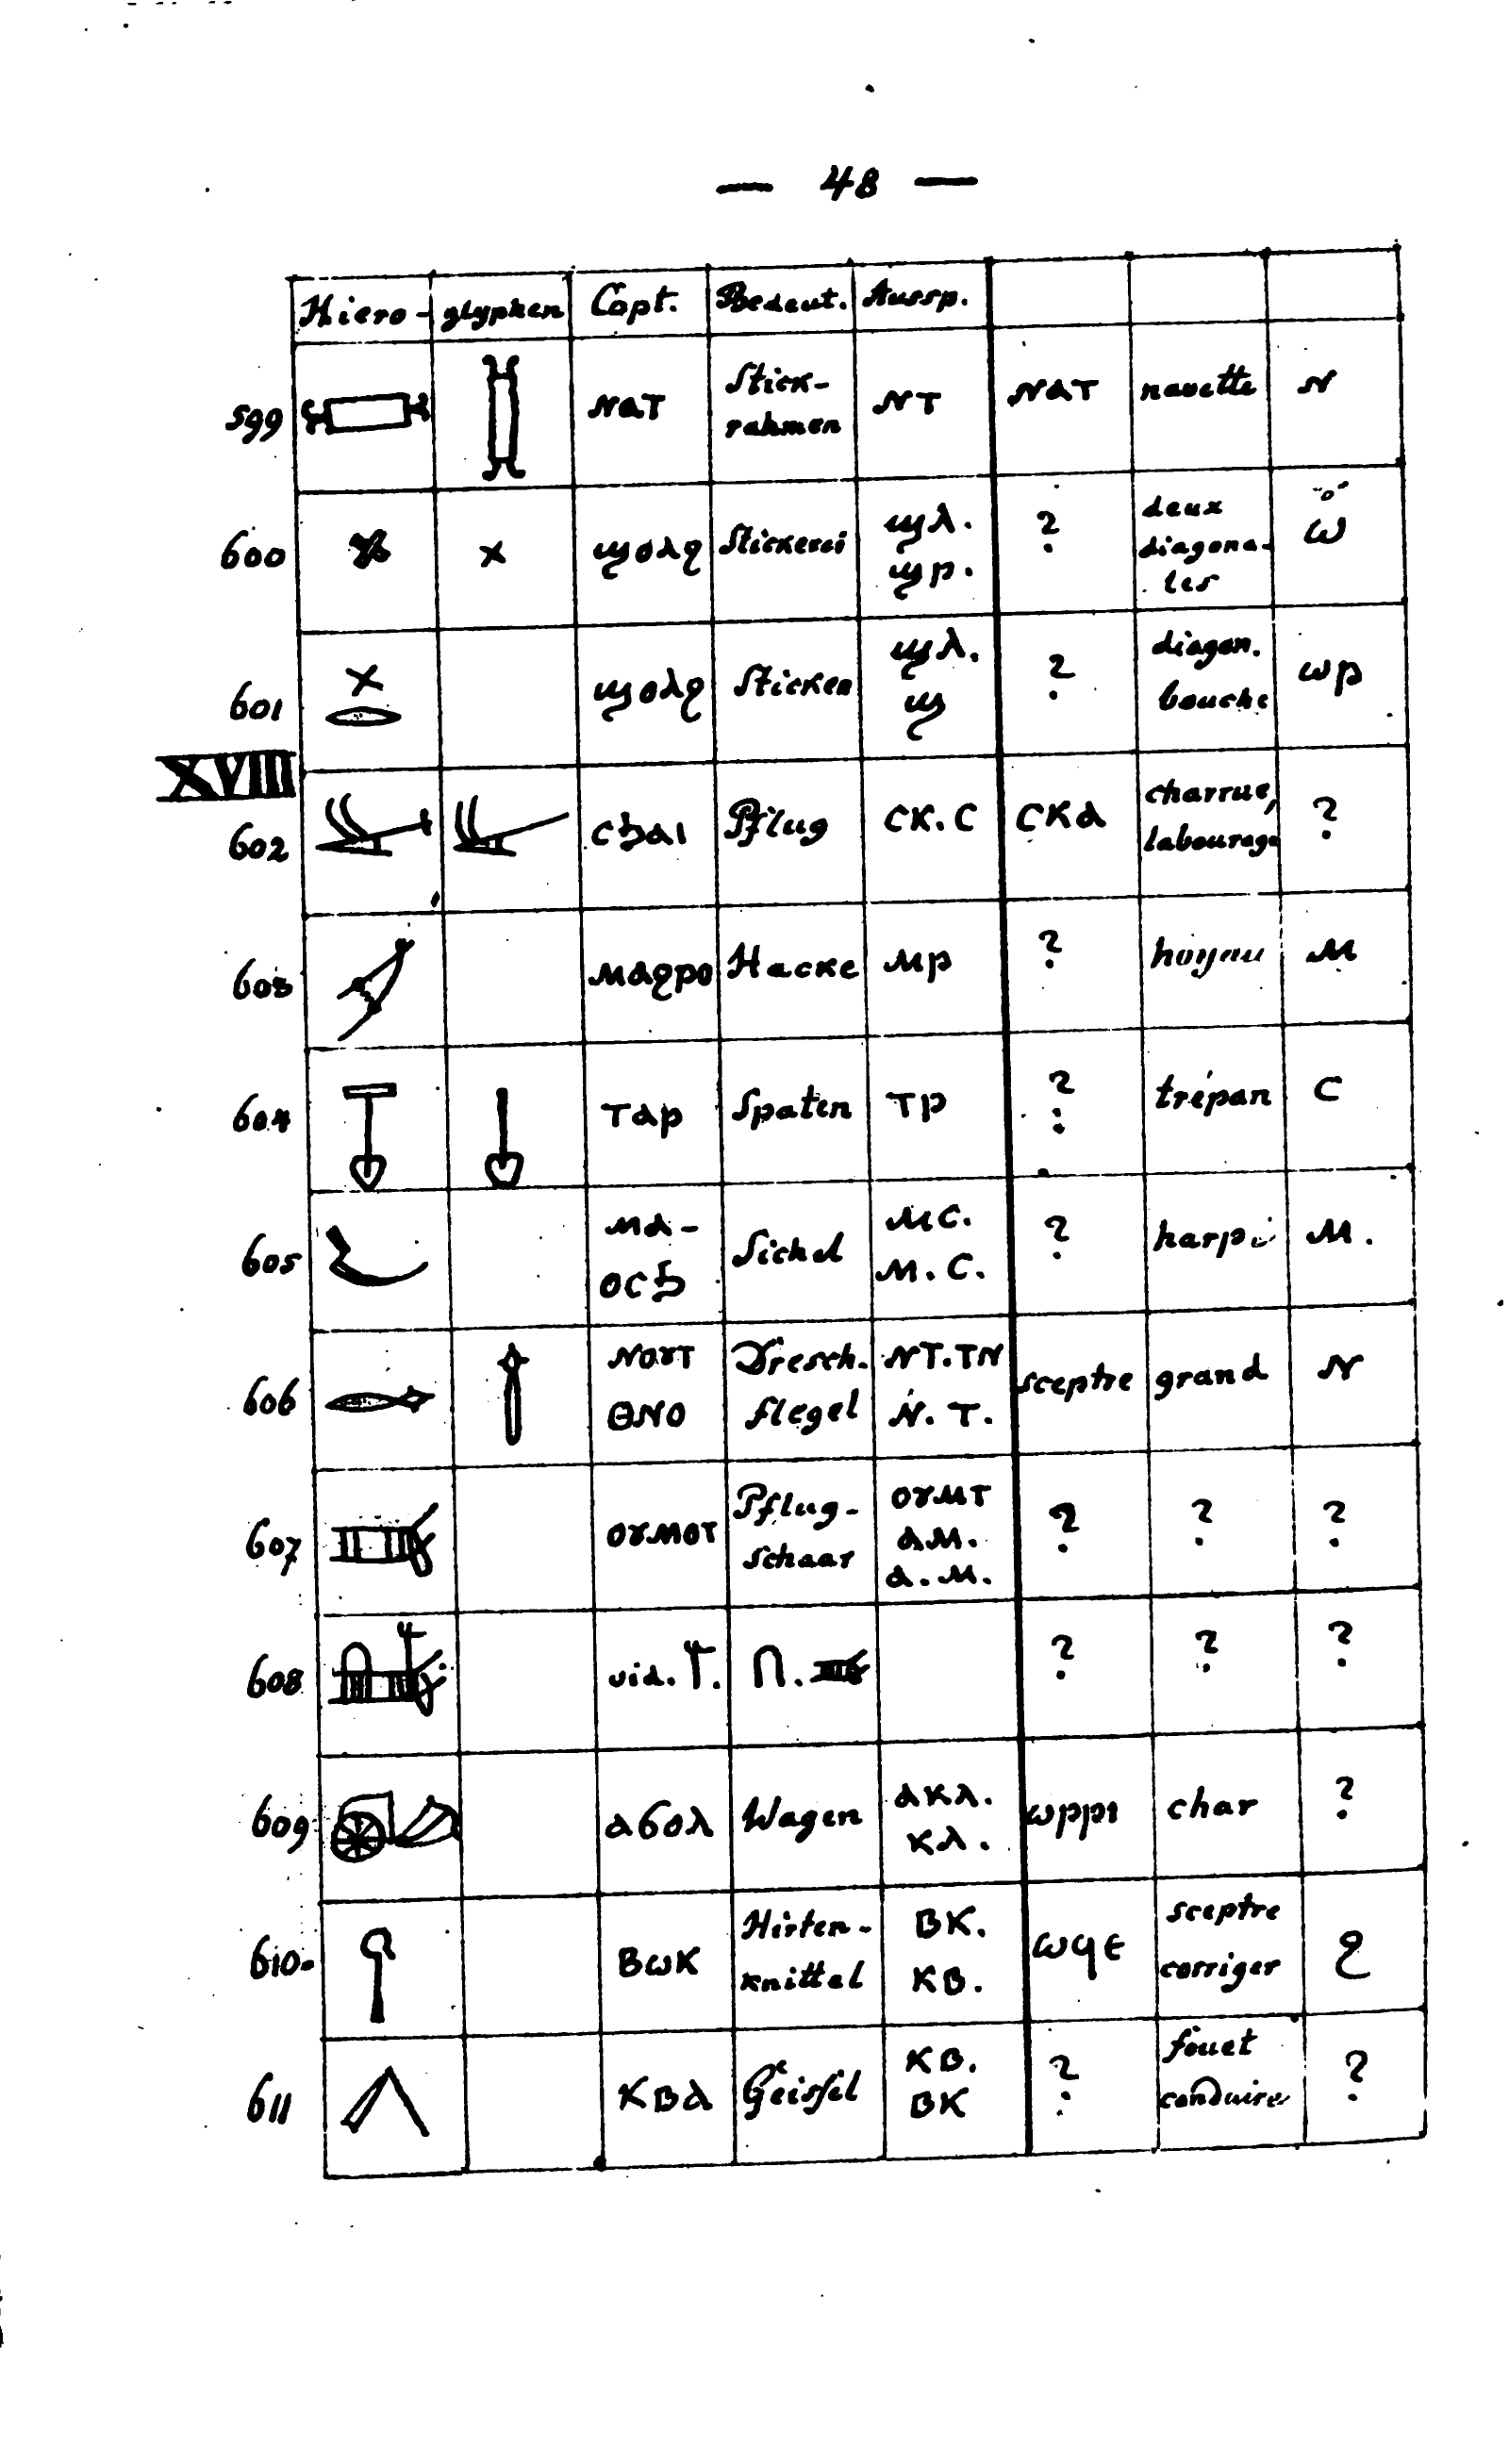 — 48 —
Hiero- glyphen Copt. Bedeut. Aussp.
599 ⲛⲁⲧ Stick-rahmen ⲛⲧ ⲛⲁⲧ navette ⲛ
600 ϣⲟⲗϩ Stickerei ϣⲗ. ϣⲣ. ? deux diagona-les ⲱ
601 ϣⲟⲗϩ Sticken ϣⲗ. ϣ ? diagon. bouche ⲱⲣ
XVIII
602 ⲥϧⲁⲓ Pflug ⲥⲕ.ⲥ ⲥⲕⲁ charrue, labourage ?
603 ⲙⲁϩⲣⲟ Hacke ⲙⲣ ? hoyau ⲙ
604 ⲧⲁⲣ Spaten ⲧⲣ ? trépan ⲥ
605 ⲙⲁ-ⲟⲥϧ Sichel ⲙⲥ. ⲙ.ⲥ. ? ⲙ.
606 ⲛⲟⲩⲧ ⲑⲛⲟ Dresch-flegel ⲛⲧ.ⲧⲛ ⲛ.ⲧ. sceptre grand ⲛ
607 ⲟⲩⲙⲟⲧ Pflug-schaar ⲟⲩⲙⲧ ⲁⲙ. ⲁ.ⲙ. ? ? ?
608 vid. ? ? ?
609 ⲁϭⲟⲗ Wagen ⲁⲕⲗ. ⲕⲗ. ⲱⲣⲣⲓ char ?
610. ⲃⲱⲕ Hirten-knittel ⲃⲕ. ⲕⲃ. ⲱϥⲉ sceptre corriger ϩ
611 ⲕⲃⲁ Geissel ⲕⲃ. ⲃⲕ ? fouet conduire ?